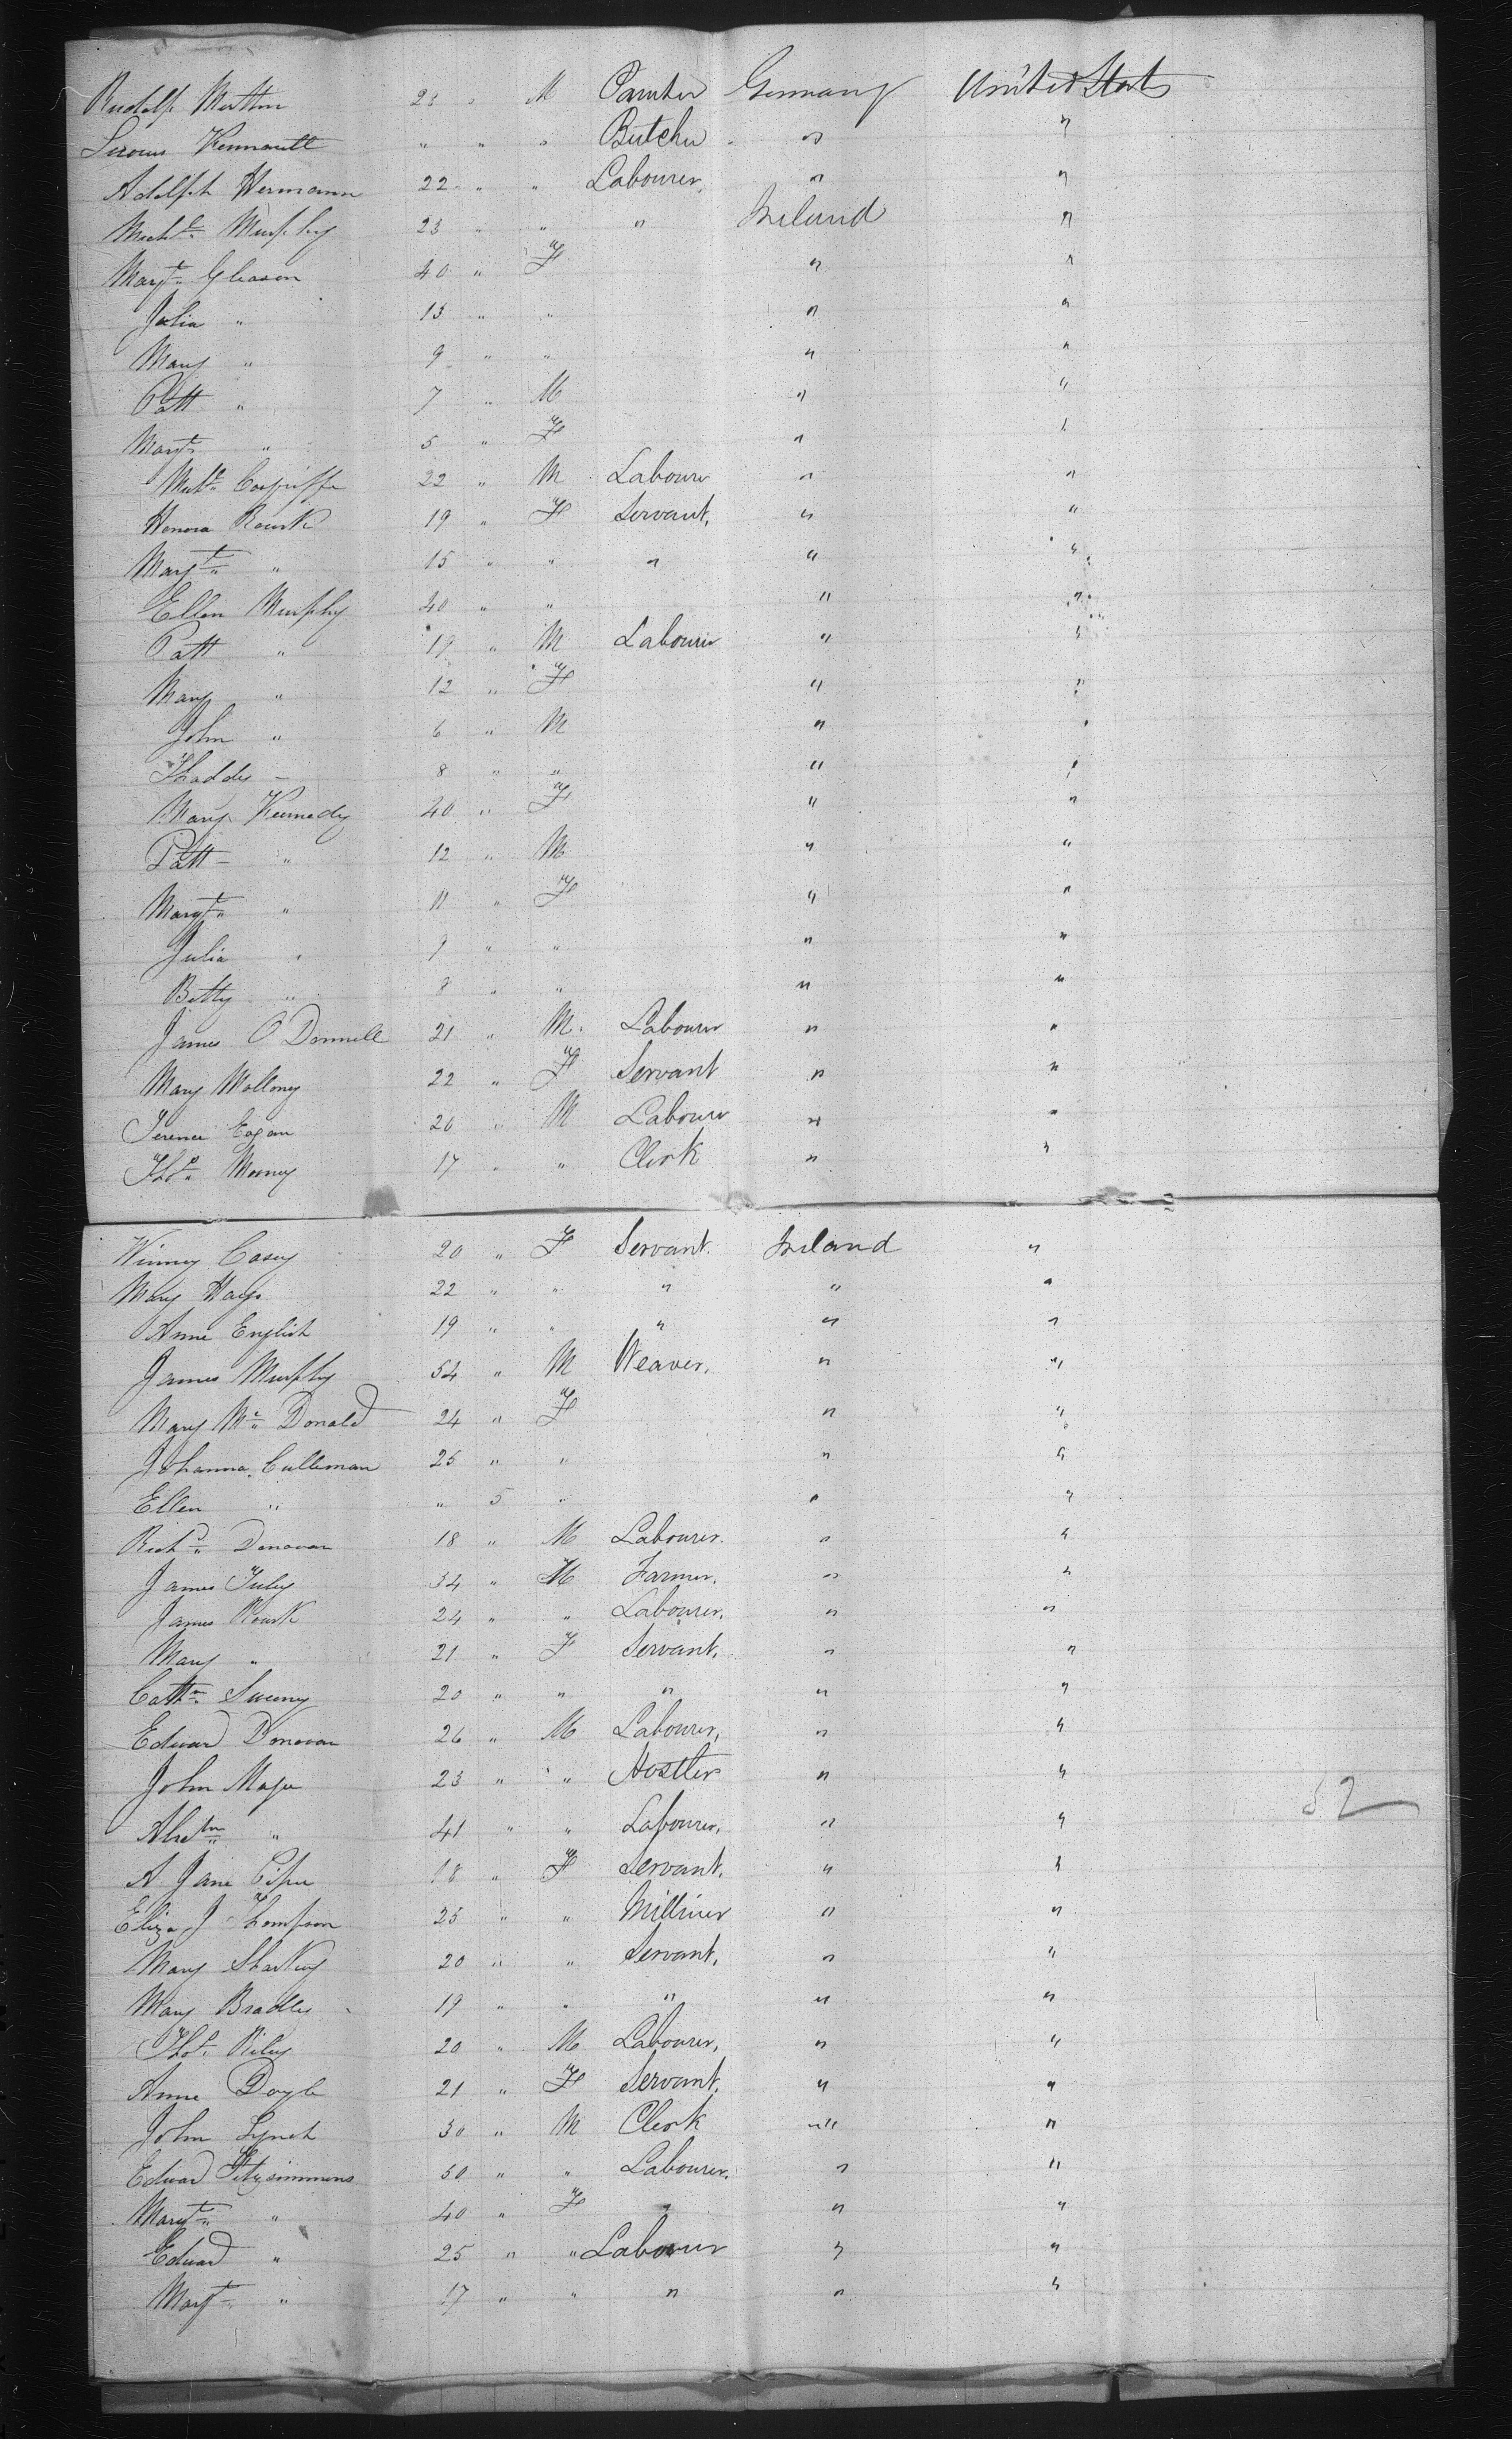 Rudolf 23 " M Painter Germany United States
" " " Butcher " "
Adolph Hermann 22 " " Labourer " "
Michl Murphy 23 " " " Ireland "
Margt Gleason 40 " F " "
Julia " 13 " " " "
Mary " 9 " " " "
Patt " 7 " M " "
Margt " 5 " F " "
22 " M Labourer " "
Honora Rourk 19 " F Servant, " "
Margt " 15 " " " " "
Ellen Murphy 40 " " " "
Patt " 19 " M Labourer " "
Mary " 12 " F " "
John " 6 " M " "
Thaddy - 8 " " " "
Mary Kennedy 40 " F " "
Patt - " 12 " M " "
Margt " 11 " F " "
Julia " 9 " " " "
Betty " 8 " " " "
James O'Donnell 21 " M. Labourer " "
Mary Mallony 22 " F Servant " "
Terence Eagan 20 " M Labourer " "
Thos 17 " " Clerk " "
Winney Casey 20 " F Servant. Ireland "
Mary Hays. 22 " " " " "
Anne English 19 " " " " "
James Murphy 54 " M Weaver, " "
Mary Mc Donald 24 " F " "
Johanna Culleman 25 " " " "
Ellen " " 5 " " "
Richd Donovan 18 " M Labourer. " "
James 34 " M Farmer. " "
James Rourk 24 " " Labourer, " "
Mary " 21 " F Servant, " "
Cathn Sweeny 20 " " " " "
Edward Donovan 26 " M Labourer, " "
John 23 " " Hostler " "
" 41 " " Labourer, " "
A Jane 18 " F Servant. " "
Eliza J Thompson 25 " " Milliner " "
Mary Sharkey 20 " " Servant, " "
Mary Bradley 19 " " " " "
Thos Riley 20 " M Labourer, " "
Anne Doyle 21 " F Servant. " "
John Lynch 30 " M Clerk " "
Edward Fitzsimmons 50 " " Labourer. " "
Margt " 40 " F " " "
Edward " 25 " " Labourer " "
Margt " 17 " " " " "